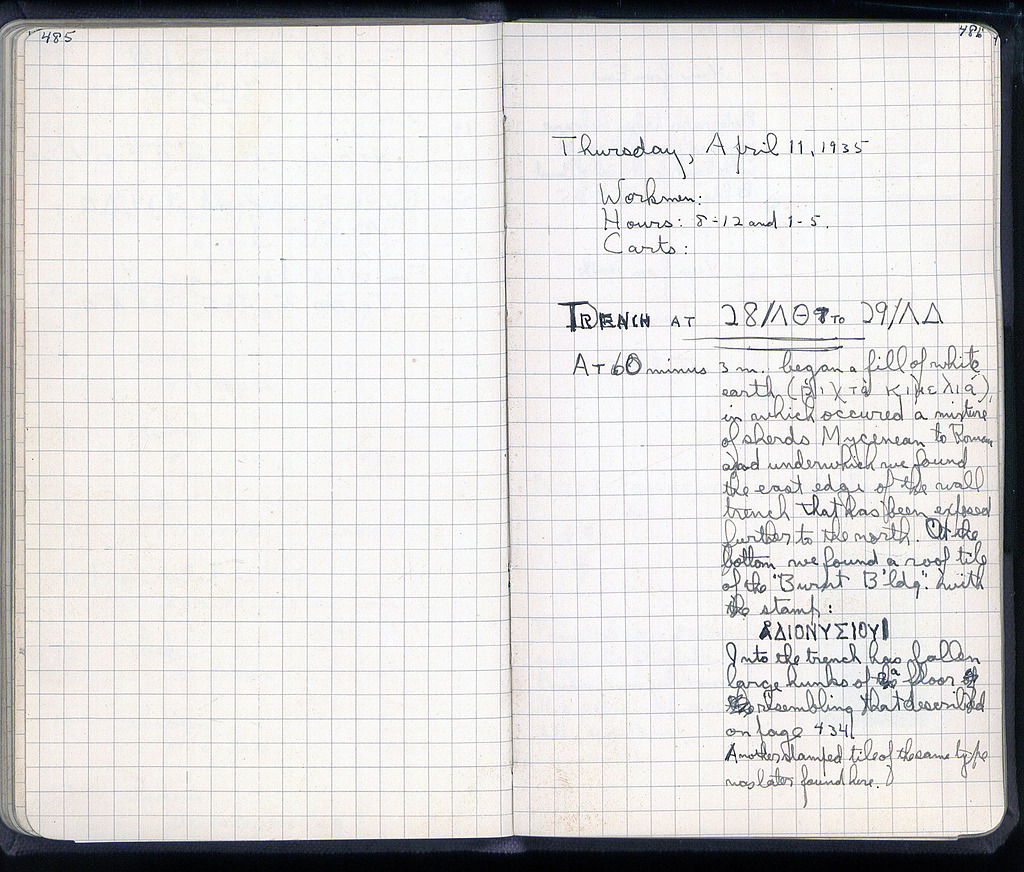 485
486
Thursday, April 11, 1935
Workmen:
Hours: 8-12 and 1-5.
Carts:
TRENCH AT 28/ΛΘ TO 29/ΛΔ
AT 60 minus 3 m. began a fill of white
earth (ῥιχτὰ κιμελιά),
in which occured a mixture
of sherds Mycenean to Roman
and underwhich we found
the east edge of the wall
trench that has been exposed
further to the north. At the
bottom we found a roof tile
of the "Burnt B'ldg". with
the stamp:
ΔΙΟΝΥΣΙΟΥ
Into the trench has fallen
large hunks of a floor
resembling that described
on page 434.
Another stamped tile of the same type
was later found here.